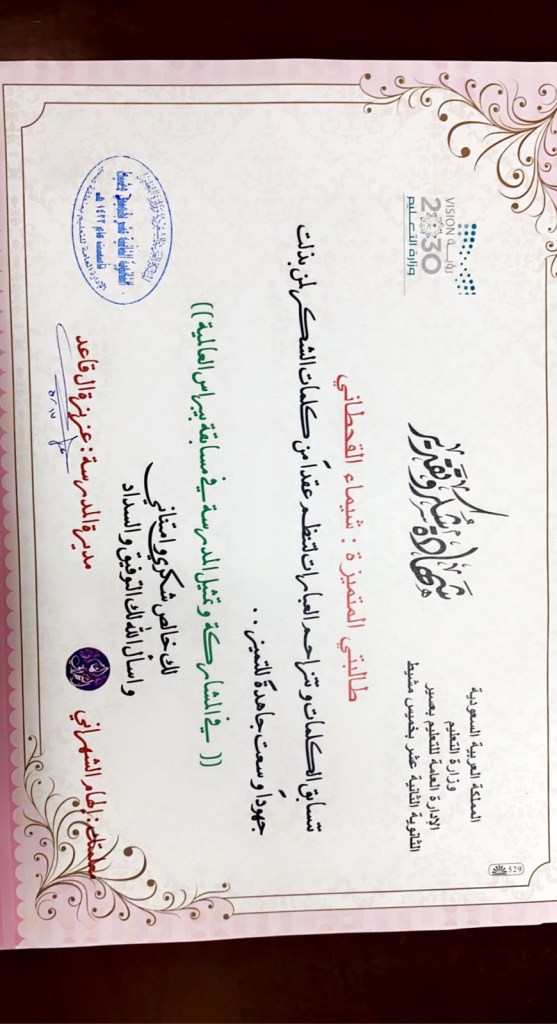 المملكة العربية السعودية
وزارة التعليم
الإدارة العامة للتعليم بعسير
الثانوية الثانية عشر بخميس مشيط
رؤيــة VISION
2030
وزارة التعـليـم
529
شهادة شكر وتقدير
طالبتي المتميزة : شيماء القحطاني
تتسابق الكلمات وتتزاحم العبارات لتنظم عقداً من كلمات الشكر لمن بذلت
جهوداً وسعت جاهدة للتميز . .
(( في المشاركة وتمثيل المدرسة في مسابقة بيبراس العالمية ))
لك خالص شكري وامتناني
واسأل الله لك التوفيق والسداد
معلمتك : إلهام الشهراني
مديرة المدرسة : عزيزة ال قاعد